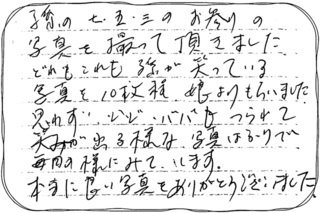 孫の七・五・三のお参りの
写真を撮って頂きました
どれもこれも孫が笑っている
写真を10枚様娘よりもらいました
思わず、ジジ・ババもつられて
笑みが出る様な写真ばかりで
毎日の様にみています。
本当に良い写真をありがとうございました。